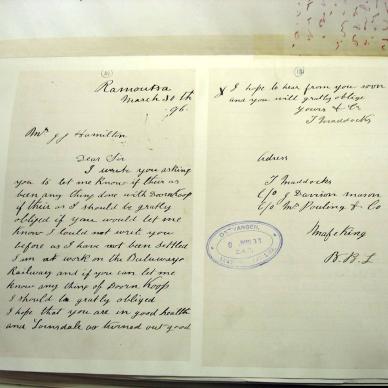 (21)
Ramoutsa
March 30th
96.
Mr J J Hamilton
Dear Sir
I write you asking
you to let me know if their as
been any thing done with Doornkoop
if their as I should be gratly
obliged if your would let me
know I could not write you
before as I have not been settled
I am at work on the Buluwayo
Railway and if you can let me
know any thing of Doorn Koop
I should be gratly obliged
I hope that you are in good health
and Lonsdale as turned out good
X I hope to hear from you soon
and you will gratly oblige
yours & Ct
J Maddocks
Adress
J Maddocks
C/o J Davison mason
C/o Mr Pauling & Co
Mafeking
B.B.L
ONTVANGEN